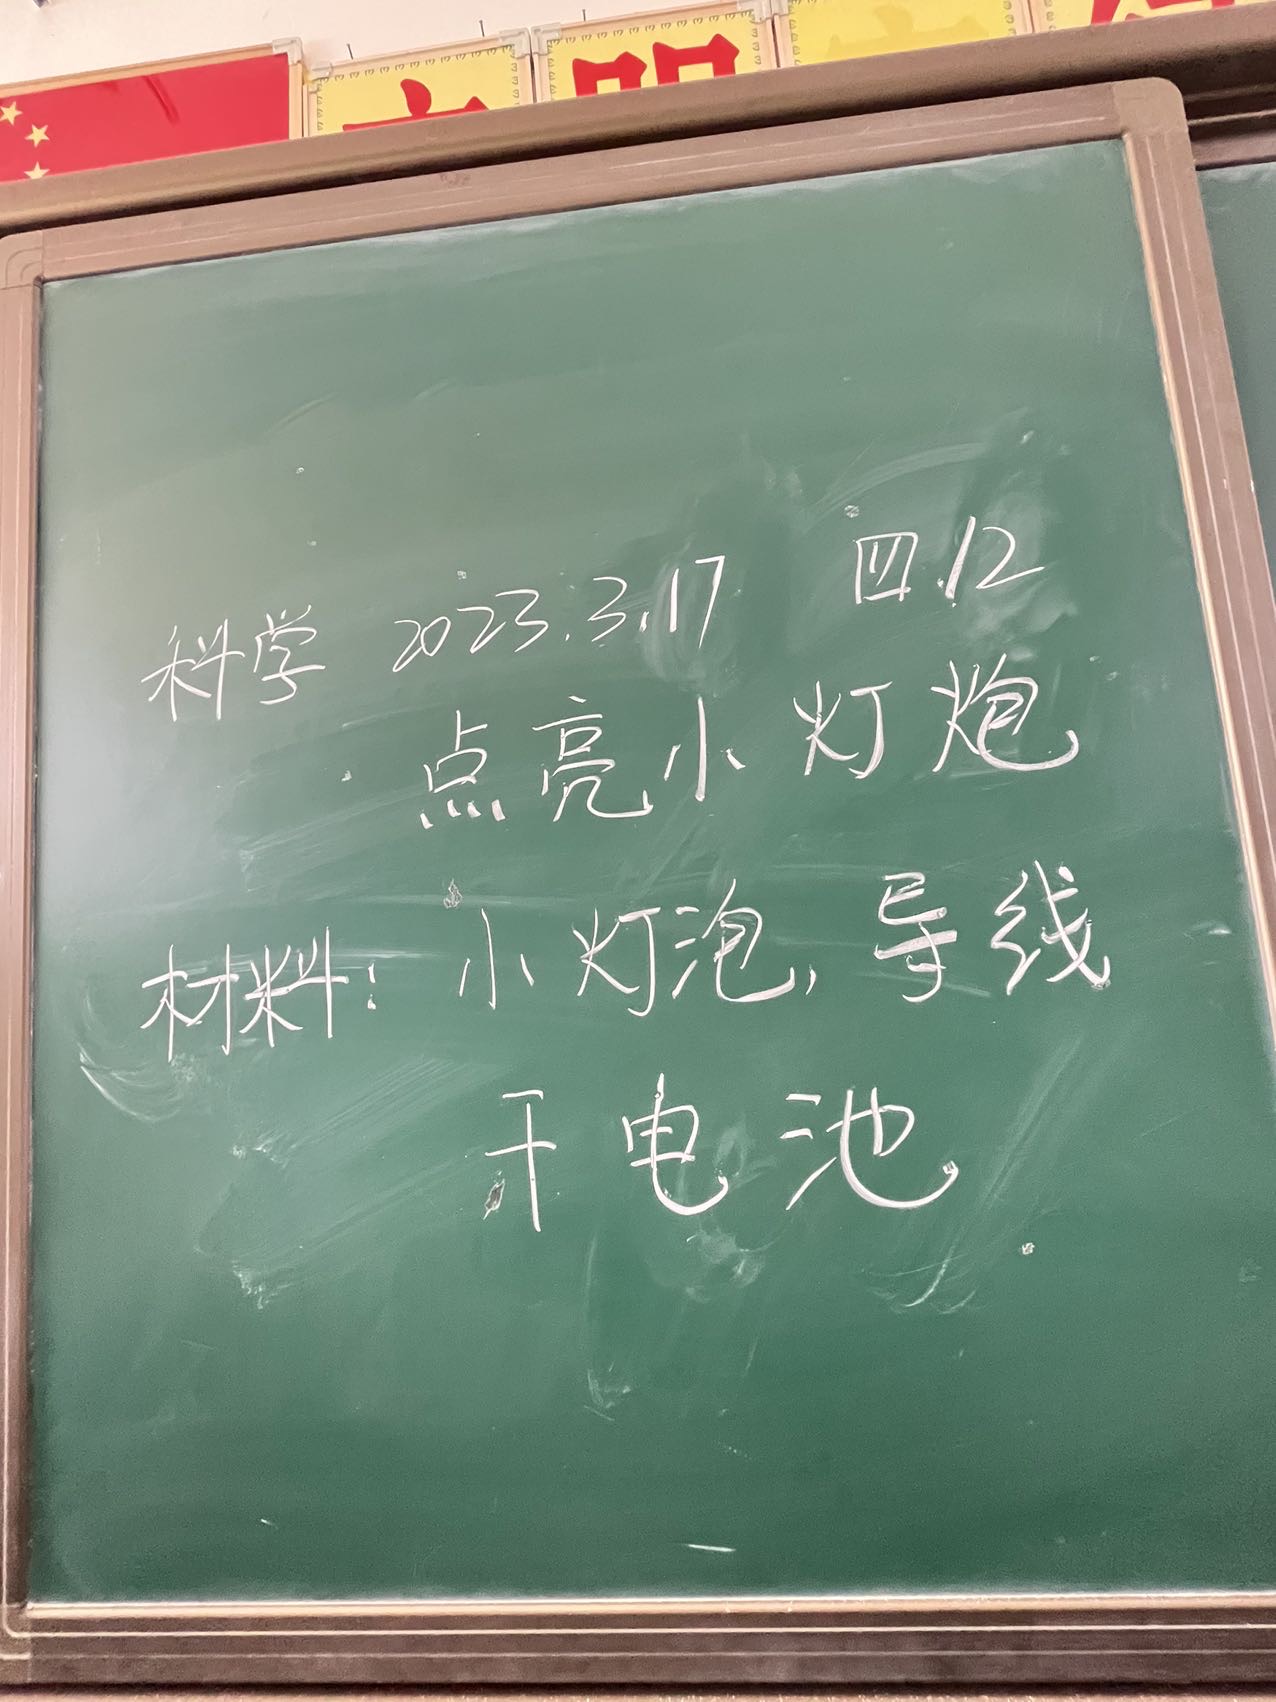 科学 2023.3.17 四.12
点亮小灯炮
材料：小灯泡，导线
干电池